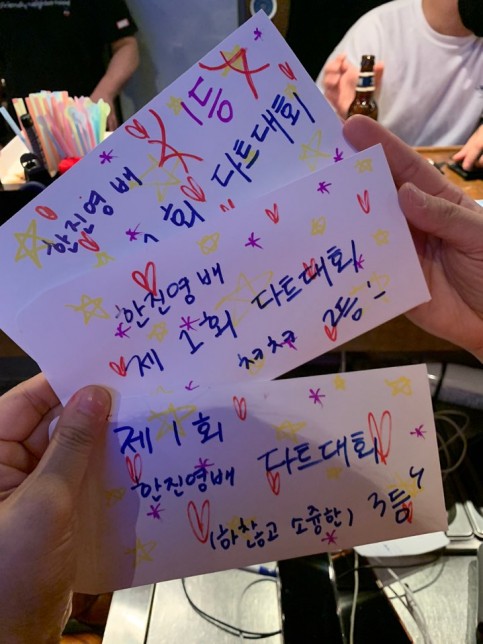 1등
한진영 배
회 다트대회
한진영배
제 1회 다트대회
2등
제 1회
한진영배 다트대회
(하찮고 소중한) 3등